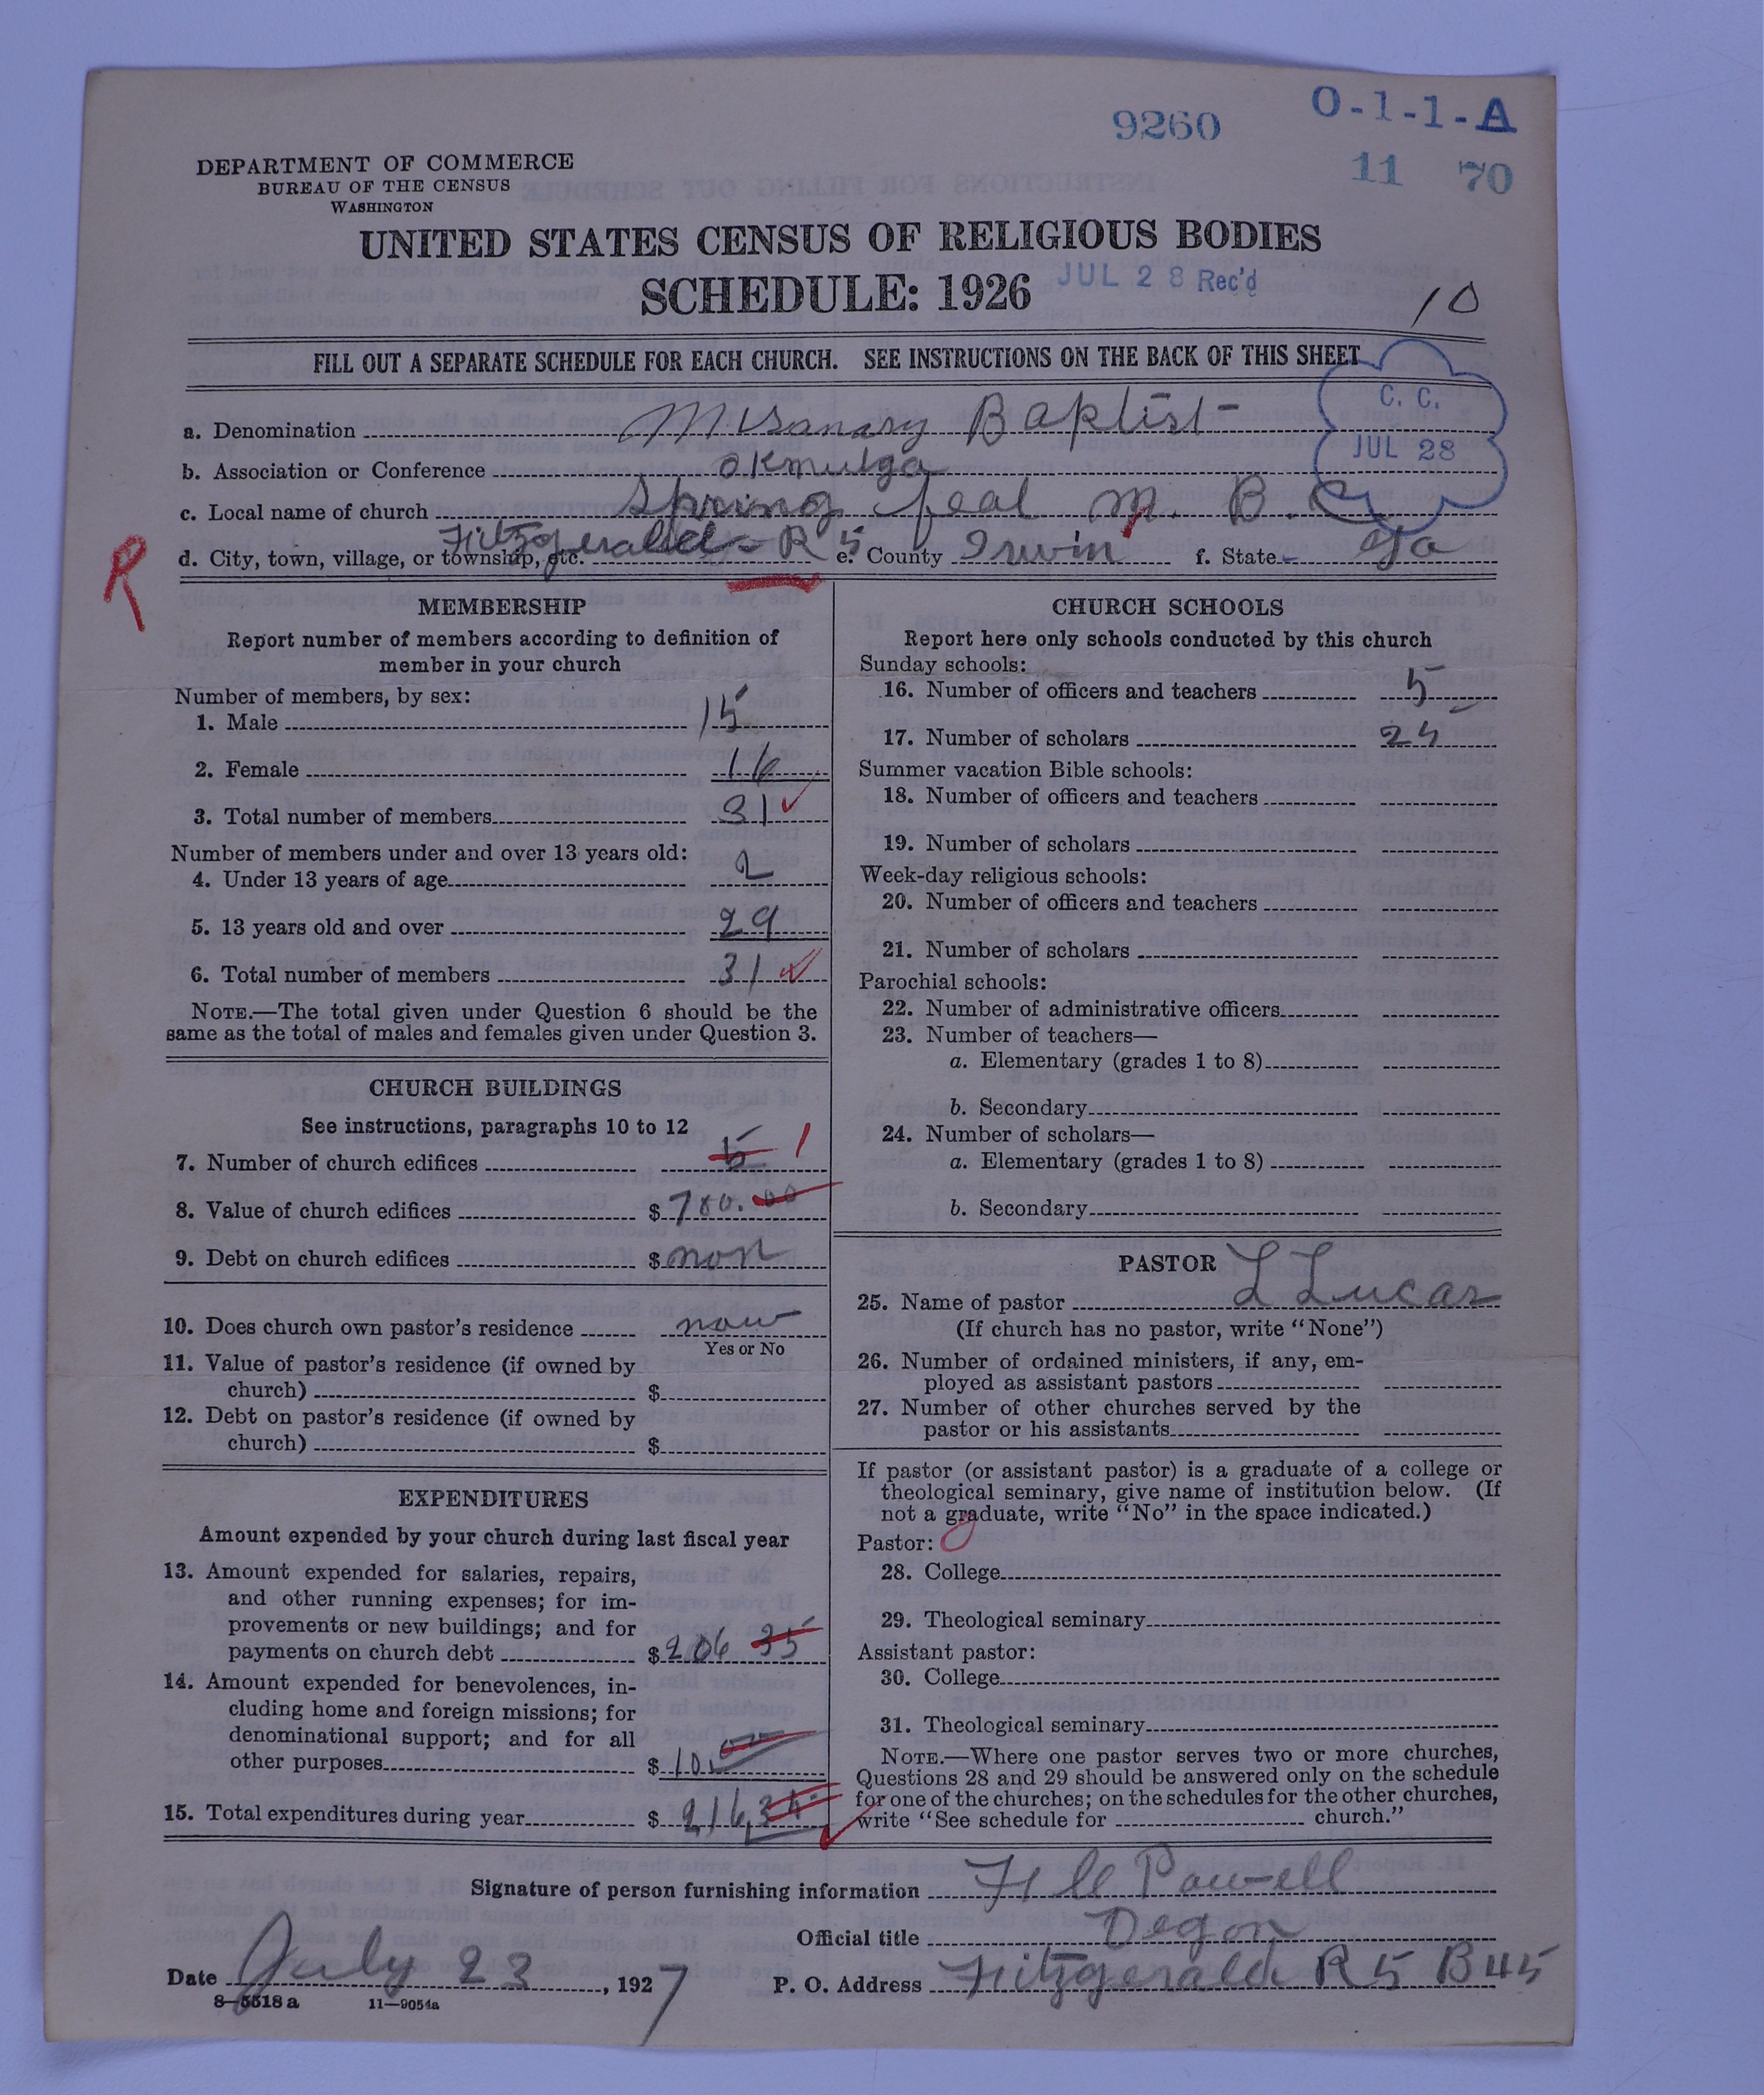 9260
O-1-1-A
11 70
DEPARTMENT OF COMMERCE
BUREAU OF THE CENSUS
WASHINGTON
UNITED STATES CENSUS OF RELIGIOUS BODIES
SCHEDULE: 1926
JUL 28 Rec'd
10
FILL OUT A SEPARATE SCHEDULE FOR EACH CHURCH. SEE INSTRUCTIONS ON THE BACK OF THIS SHEET
C. C.
JUL 28
a. Denomination Baptist
b. Association or Conference okmulga
c. Local name of church Spring feal M. B. C
R
d. City, town, village, or township, etc. Fitzgerald - R 5 e. County Irwin f. State Ga
MEMBERSHIP
Report number of members according to definition of
member in your church
Number of members, by sex:
1. Male 15
2. Female 16
3. Total number of members 31
Number of members under and over 13 years old:
4. Under 13 years of age 2
5. 13 years old and over 29
6. Total number of members 31
NOTE.—The total given under Question 6 should be the
same as the total of males and females given under Question 3.
CHURCH BUILDINGS
See instructions, paragraphs 10 to 12
7. Number of church edifices 5 1
8. Value of church edifices $ 780.00
9. Debt on church edifices $ non
10. Does church own pastor's residence now
Yes or No
11. Value of pastor's residence (if owned by
church) $
12. Debt on pastor's residence (if owned by
church) $
EXPENDITURES
Amount expended by your church during last fiscal year
13. Amount expended for salaries, repairs,
and other running expenses; for im-
provements or new buildings; and for
payments on church debt $ 206 35
14. Amount expended for benevolences, in-
cluding home and foreign missions; for
denominational support; and for all
other purposes $ 10.00
15. Total expenditures during year $ 216,35
CHURCH SCHOOLS
Report here only schools conducted by this church
Sunday schools:
16. Number of officers and teachers 5
17. Number of scholars 25
Summer vacation Bible schools:
18. Number of officers and teachers
19. Number of scholars
Week-day religious schools:
20. Number of officers and teachers
21. Number of scholars
Parochial schools:
22. Number of administrative officers
23. Number of teachers—
a. Elementary (grades 1 to 8)
b. Secondary
24. Number of scholars—
a. Elementary (grades 1 to 8)
b. Secondary
PASTOR
25. Name of pastor L Lucas
(If church has no pastor, write "None")
26. Number of ordained ministers, if any, em-
ployed as assistant pastors
27. Number of other churches served by the
pastor or his assistants
If pastor (or assistant pastor) is a graduate of a college or
theological seminary, give name of institution below. (If
not a graduate, write "No" in the space indicated.)
Pastor:
28. College
29. Theological seminary
Assistant pastor:
30. College
31. Theological seminary
NOTE.—Where one pastor serves two or more churches,
Questions 28 and 29 should be answered only on the schedule
for one of the churches; on the schedules for the other churches,
write "See schedule for church."
Signature of person furnishing information Powell
Official title Degon
Date July 23, 1927 P. O. Address Fitzgerald R 5 B 45
8—5518 a 11—9054a